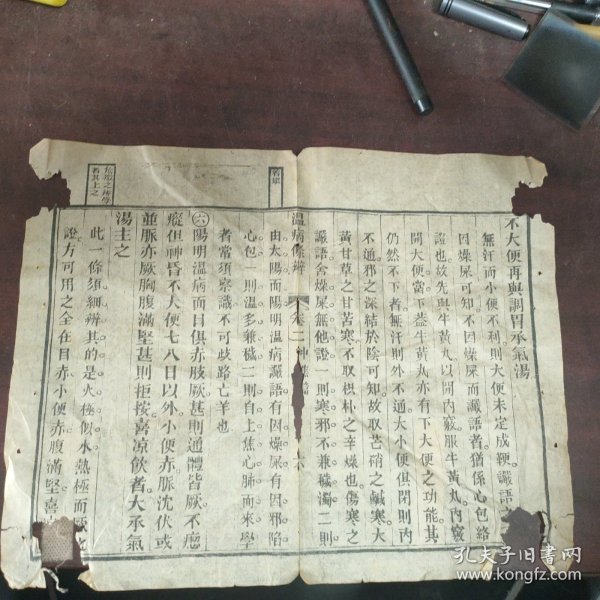 不大便再與調胃承氣湯
無汗而小便不利則大便未定成鞕譫語之
因燥屎可知不因燥屎而譫語者猶係心包絡
證也故先與牛黃丸以開內竅服牛黃丸內竅
開大便當下蓋牛黃丸亦有下大便之功能其
仍然不下者無汗則外不通大小便俱閉則內
不通邪之深結於陰可知故取芒硝之鹹寒大
黃甘草之甘苦寒不取枳朴之辛燥也傷寒之
譫語舍燥屎無他證一則寒邪不兼穢濁二則
溫病條辨
卷二
由太陽而陽明溫病譫語有因燥屎有因邪陷
心包一則溫多兼穢二則自上焦心肺而來學
者常須察識不可歧路亡羊也
六陽明溫病面目俱赤肢厥甚則通體皆厥不瘈
瘲但神昏不大便七八日以外小便赤脈沈伏或
並脈亦厥胸腹滿堅甚則拒按喜涼飲者大承氣
湯主之
此一條須細辨其的是火極似水熱極而
證方可用之全在目赤小便赤腹滿堅喜
者其上之
孔夫子旧書网
www.kongfz.com